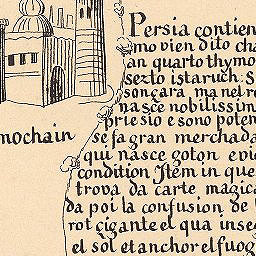 Persia contien
mo vien dito cha
an quarto thymo
serto istaruch: S
sonçara ma nel re
nasce nobilissim
priesio e sono poten
mochain
se fa gran merchada
qui nasce goton e vie
condition Item in que
trova da carte magica
da poi la confusion de
rot gigante el qua inse
el sol etanchor el fuog